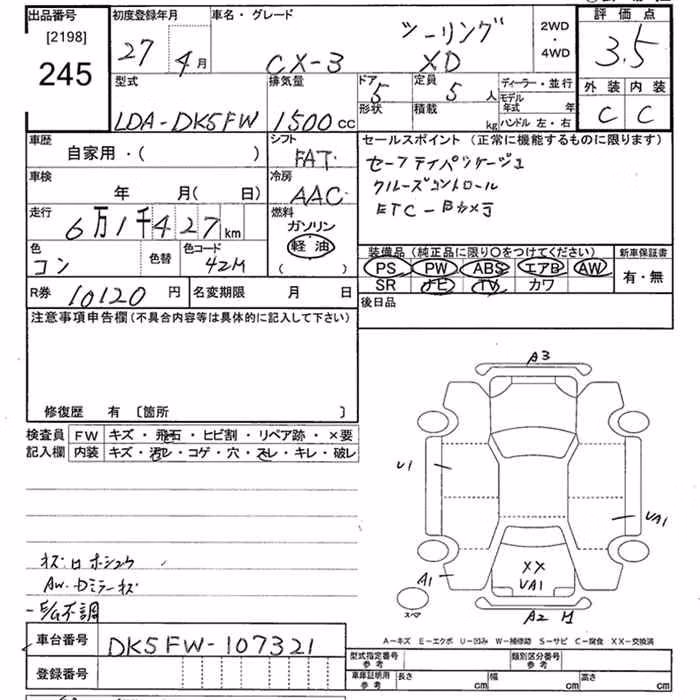 出品番号 初度登録年月 車名・グレード 評価点
[2198] 27 4月 CX-3 ツーリング XD 2WD・4WD 3.5
245
型式 排気量 ドア 5 定員 5人 ディーラー・並行 外装 内装
形状 積載 kg モデル年式 年 C C
LDA-DK5FW 1500cc ハンドル 左・右
車歴 シフト セールスポイント(正常に機能するものに限ります)
自家用・( ) FAT
車検 冷房 クルーズコントロール
年 月( 日) AAC ETC-Bカメラ
走行 燃料
6万1千427km ガソリン
軽油
( )
色 色替 色コード 装備品(純正品に限り○をつけてください) 新車保証書
コン 42M PS PW ABS エアB AW 有・無
SR ナビ TV カワ
R券 10120円 名変期限 月 日 後日品
注意事項申告欄(不具合内容等は具体的に記入して下さい)
修復歴 有 〔箇所 〕
検査員 FW キズ・飛石・ヒビ割・リペア跡・×要
記入欄 内装 キズ・汚レ・コゲ・穴・スレ・キレ・破レ
A3
U1
VA1
XX
VA1
A1
スペア
A2 M
AW・Dミラーキズ
E/G不調
A-キズ E-エクボ U-凹み W-補修跡 S-サビ C-腐食 XX-交換済
車台番号 DK5FW-107321
型式指定番号 参考 類別区分番号 参考
登録番号 車庫証明用 参考 長さ cm 幅 cm 高さ cm